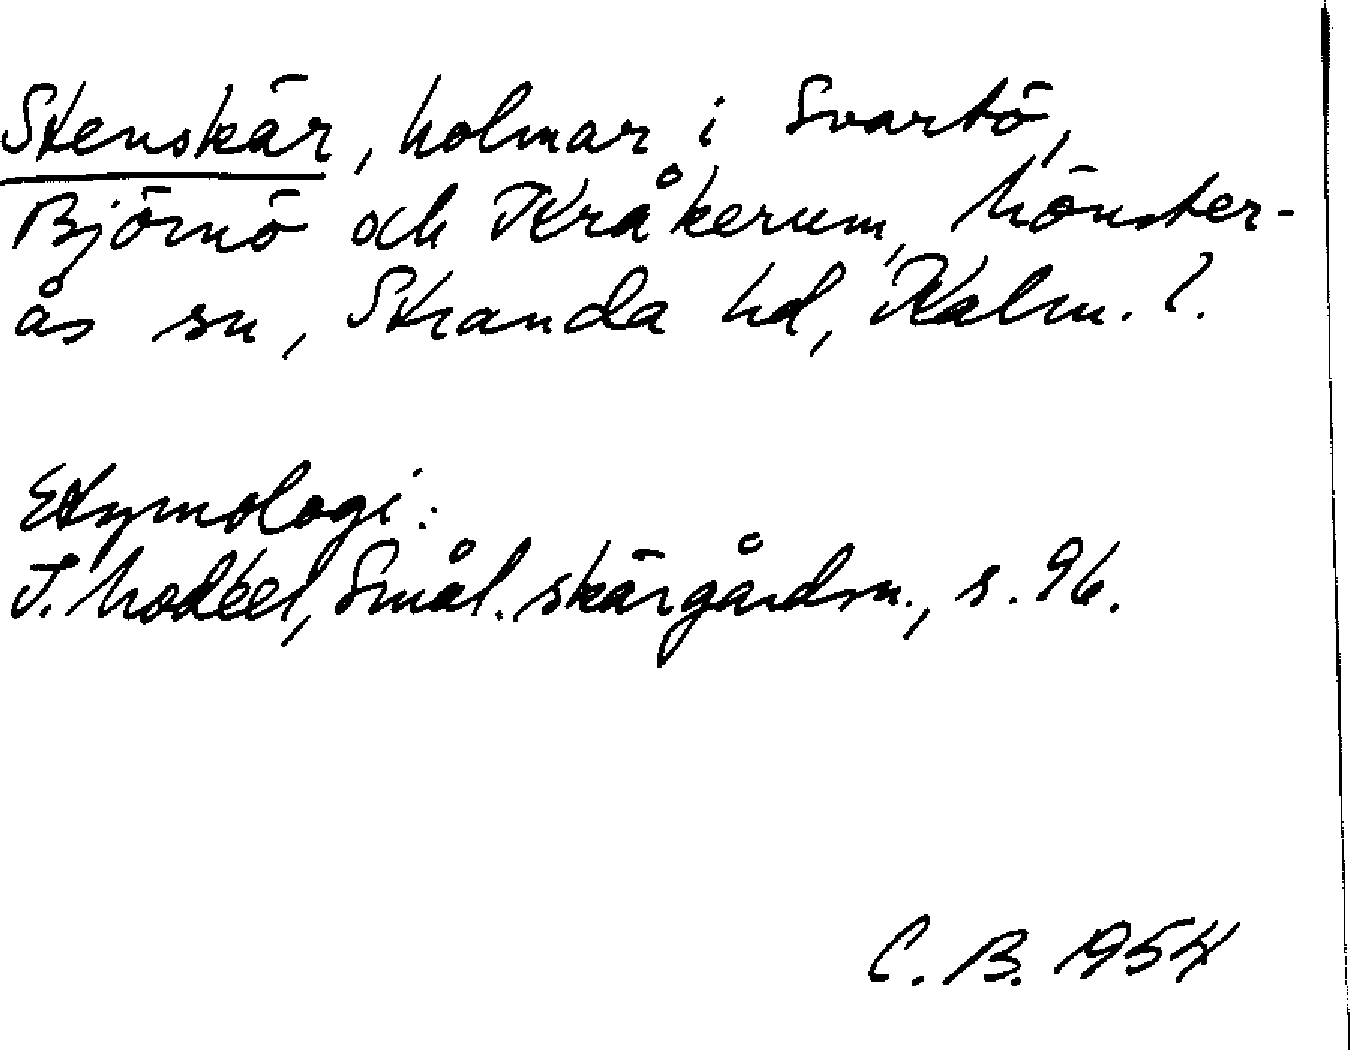 Stenskär, holmar i Svartö,
Björnö och Kråkerum, Mönster-
ås sn, Stranda hd, Kalm. l.
Etymologi:
I. Modéer, Smål. skärgårdsn., s. 96.
C. B. 1954